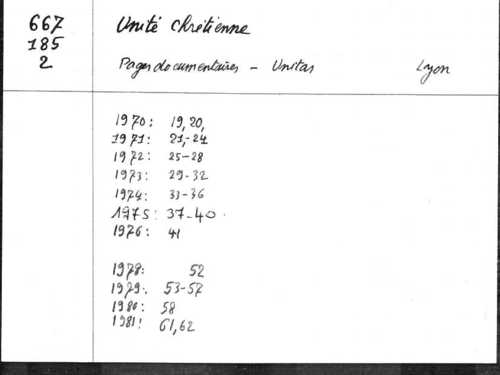 667 Unité chrétienne
185
2 Pages documentaires - Unitas Lyon
1970: 19, 20,
1971: 21,-24
1972: 25-28
1973: 29-32
1974: 33-36
1975: 37-40.
1976: 41
1978: 52
1979: 53-57
1980: 58
1981: 61,62